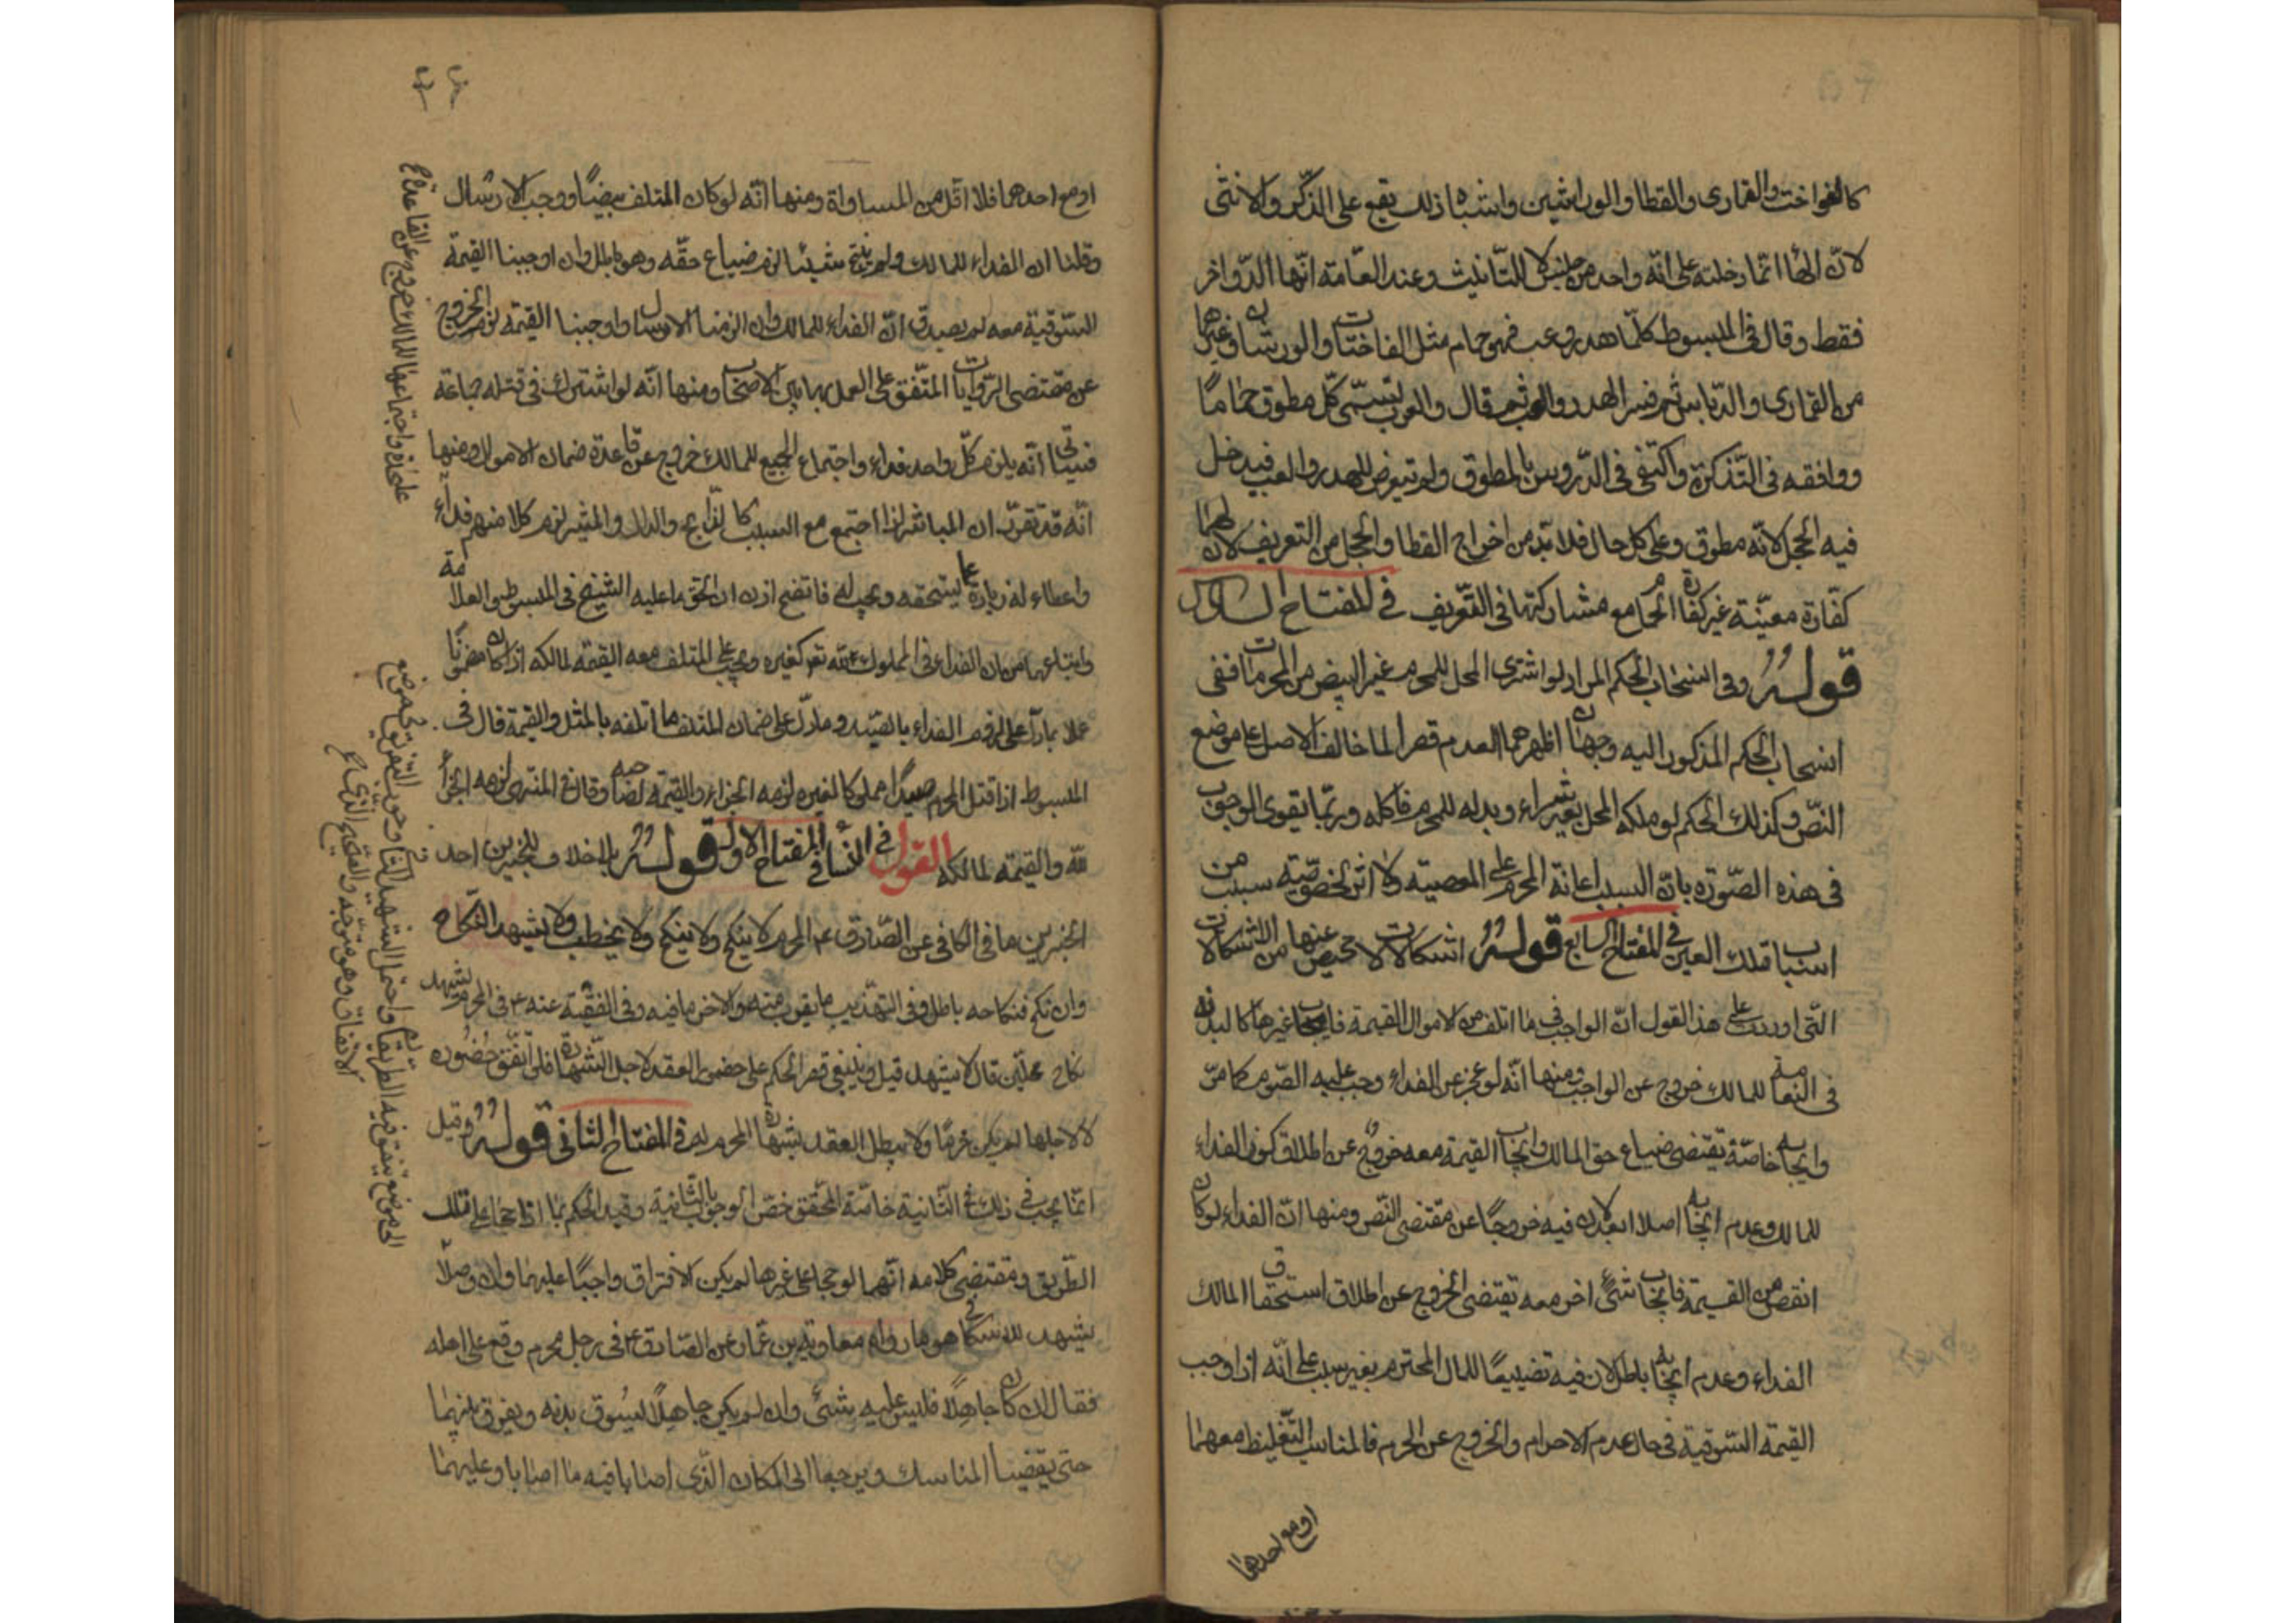 كالفواخت والقمارى والقطا والوراشين واشباه ذلك يقع على الذّكر والانثى
لانّ الهاء انّما دخلته على انّه واحد من جنس لا للتّانيث وعند العامّة انّها الدّواخر
فقط وقال فى المبسوط كلّما هدر وعب فهو حمام مثل الفاختات والورشان وغيرها
من القمارى والدّباسى ثم فسر الهدر والعب ثم قال والعرب تسمّى كلّ مطوق حمامًا
ووافقه فى التّذكرة واكتفى فى الدّروس بالمطوق ولم يتعرض للهدر والعب فيدخل
فيه الحجل لانّه مطوق وعلى كل حال فلا بدّ من اخراج القطا والحجل من التعريف لان لهما
كفّارة معيّنة غير كفّارة الحمام مع مشاركتها فى التّعريف فى المفتاح السادس
قوله وفى انسحاب الحكم المراد لو اشترى المحل للمحرم غير البيض من المحرمات ففى
انسحاب الحكم المذكور اليه وجهان اظهرهما العدم قصرا لما خالف الاصل على موضع
النّص وكذلك الحكم لو ملكه المحل بغير شراء وبذله للمحرم فاكله وربّما يقوى الوجوب
فى هذه الصّورة بان السبب اعانة المحرم على المعصية ولا اثر لخصوصيّة سبب من
اسباب تملك العين فى المفتاح السابع قوله اشكالات لا محيص عنها من الاشكالات
التى اوردت على هذا القول انّ الواجب فى ما اتلف من الاموال القيمة فايجاب غيرها كالبدنة
فى النعامة للمالك خروج عن الواجب ومنها انّه لو عجز عن الفداء وجب عليه الصّوم كما مرّ
وايجابه خاصّة تقتضى ضياع حق المالك وايجاب القيمة معه خروج عن اطلاق كون الفداء
للمالك وعدم ايجابه اصلا ابعد لان فيه خروجًا عن مقتضى النّص ومنها انّ الفداء لو كان
انقص من القيمة فايجاب شئ اخر معه يقتضى الخروج عن اطلاق استحقاق المالك
الفداء وعدم ايجابه باطل لان فيه تضييعًا للمال المحترم بغير سبب على انّه اذا وجب
القيمة السّوقية فى حال عدم الاحرام والخروج عن الحرم فالمناسب التّغليظ معهما
او مع احدهما
او مع احدهما فلا اقل من المساواة ومنها انّه لو كان المتلف بيضًا ووجب الارسال
وقلنا ان الفداء للمالك ولم ينتج شيئا لزم ضياع حقّه وهو باطل وان اوجبنا القيمة
السّوقية معه لم يصدق انّ الفداء للمالك وان الزمنا الارسال واوجبنا القيمة لزم الخروج
عن مقتضى الرّوايات المتّفق على العمل بها بين الاصحاب ومنها انّه لو اشترك فى قتله جماعة
فبيتا انّه يلزم كلّ واحد فداء واجتماع الجميع للمالك خروج عن قاعدة ضمان الاموال ومنها
انّه قد تقرّر ان المباشر اذا اجتمع مع السبب كالذابح والدال والمشير لزم كلا منهم فداء
واعطاء له زيادة عما يستحقه ويجب له فاتضح اذن ان الحق ما عليه الشيخ فى المبسوط والعلامة
واتباعهما من ان الفداء فى المملوك لله تعم كغيره ويجب على المتلف معه القيمة لمالكه اذا كان مضمونًا
عملا بما دلّ على لزوم الفداء بالصّيد وما دلّ على ضمان المتلف ما اتلفه بالمثل والقيمة قال فى
المبسوط اذا قتل المحرم صيدًا مملوكا لغيره لزمه الجزاء والقيمة لصاحبه وقال فى المنتهى لزمه الجزاء
لله والقيمة لمالكه القول فى النساء فى المفتاح الاول قوله بالاخلاف للخبرين احد
الخبرين ما فى الكافى عن الصّادق ع المحرم لا ينكح ولا ينكح ولا يخطب ولا يشهد النّكاح
وان نكح فنكاحه باطل وفى التهذيب ما يقرب منه والاخر ما فيه وفى الفقيه عنه ع فى المحرم يشهد
نكاح محلّين قال لا يشهد قيل وينبغى قصر الحكم على حضور العقد لاجل الشّهادة فلو اتّفق حضوره
لا لاجلها لم يكن محرمًا ولا يبطل العقد بشهادة المحرم له فى المفتاح الثانى قوله وقيل
انّما يجب فى ذلك فى الثّانية خاصّة المحقق خصّ الوجوب بالثّانية وقيد الحكم بما اذا حجا على تلك
الطّريق ومقتضى كلامه انّهما لو حجا على غيرها لم يكن الافتراق واجبًا عليهما وان وصلا
يشهد للاسكافى هو ما رواه معاوية بن عمار عن الصّادق ع فى رجل محرم وقع على اهله
فقال ان كان جاهلًا فليس عليه شئ وان لم يكن جاهلًا ليسوق بدنه ويفرق بينهما
حتى يقضيا المناسك ويرجعا الى المكان الذّى اصابا فيه ما اصابا وعليهما
للمالك خروج عن القاعدة
الى موضع يتفق فيه الطريقان واحتمل الشهيد الثانى وجوب التفرق فى موضع
الاتفاق وهو متوجه